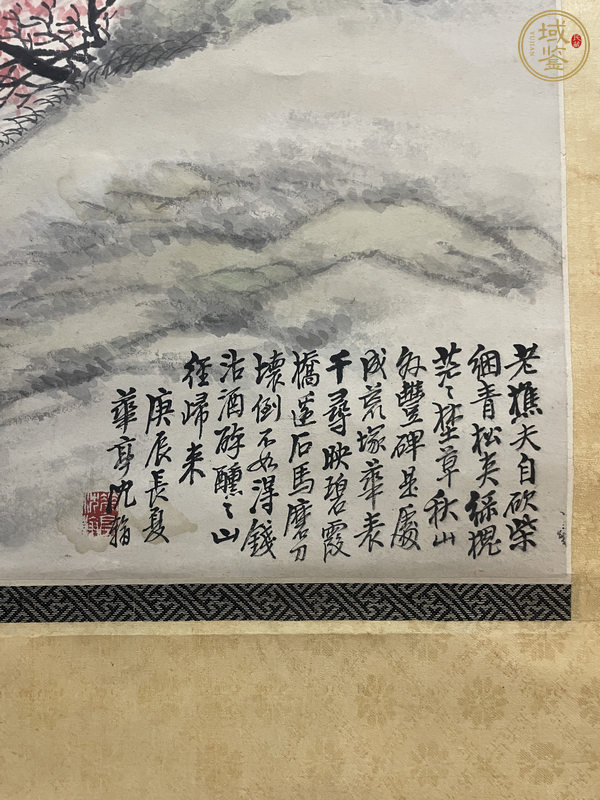 老樵夫自砍柴
綑青松夾綠槐
茫〻埜草秋山
外豐碑是處
成荒塚華表
千尋映碧霞
橋邊石馬磨刀
壞倒不如得錢
沽酒醉醺〻山
徑歸來
庚辰長夏
華亭沈
域鉴